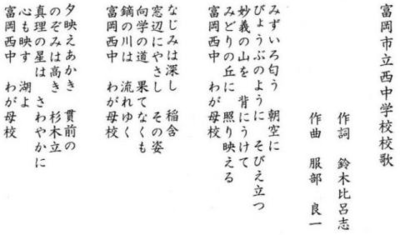 富岡市立西中学校校歌
作詞　鈴木比呂志
作曲　服部　良一
みずいろ匂う　朝空に
びょうぶのように　そびえ立つ
妙義の山を　背にうけて
みどりの丘に　照り映える
富岡西中　わが母校
なじみは深し　稲含
窓辺にやさし　その姿
向学の道　果てなくも
鏑の川は　流れゆく
富岡西中　わが母校
夕映えあかき　貫前の
のぞみは高き　杉木立
真理の星は　さわやかに
心も映す　湖よ
富岡西中　わが母校